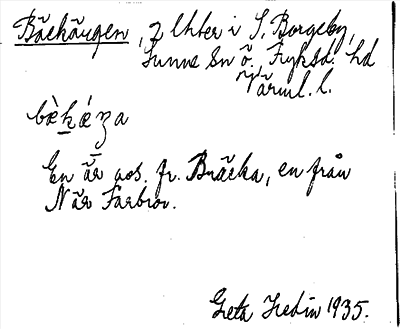 Bäckhöugen, 2 lhter i S. Borgeby,
Sunne sn Ö. Fryksd. hd
Värml. l.
bèkǽza
En är avs. fr. Bräcka, en från
När Farbror.
Greta Hedin 1935.